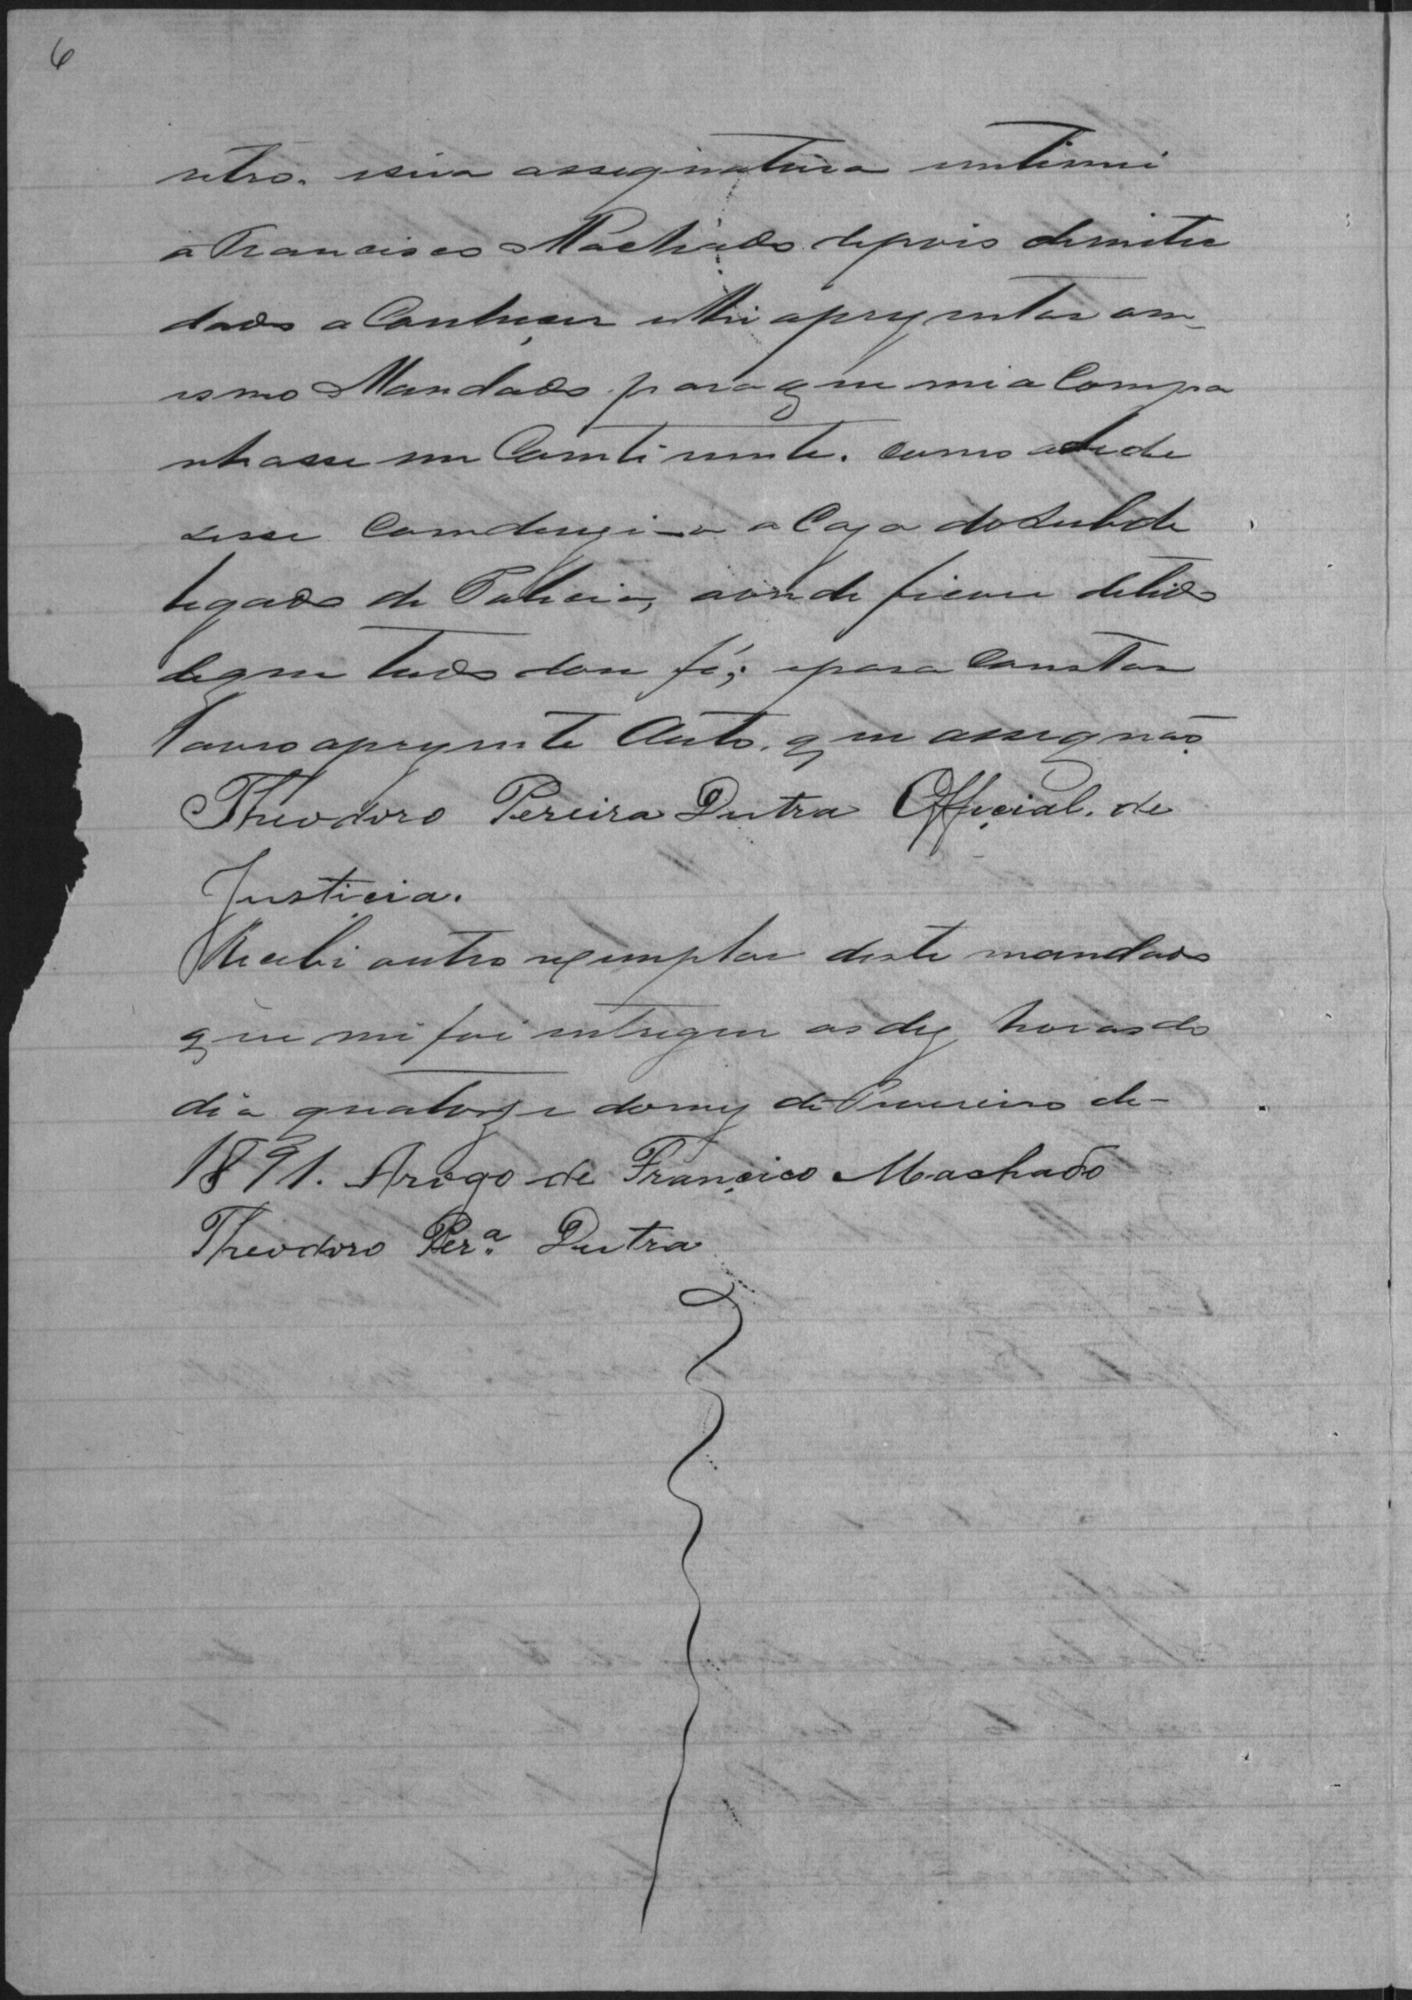 6
retro. e sua assignatura intimei
a Francisco Machado depois de me ter
dado a Conheçer e lhi aprezentar om
esmo Mandado para que mi a Compa
nhasse em Contin­ente. como obede
sesse Comdusi-o a Caza do Subde
legado de Policia, aonde ficou detido
de que tudo dou fé; e para Constar
lavro aprezente Auto. que assigno
Theodoro Pereira Dutra Official. de
Justiçia.
Recebi outro exemplar deste mandado
que mi foi entregue as dez horas do
dia quatorze do mez de Fevereiro de
1891. Arogo de Françisco Machado
Theodoro Per.ª Dutra